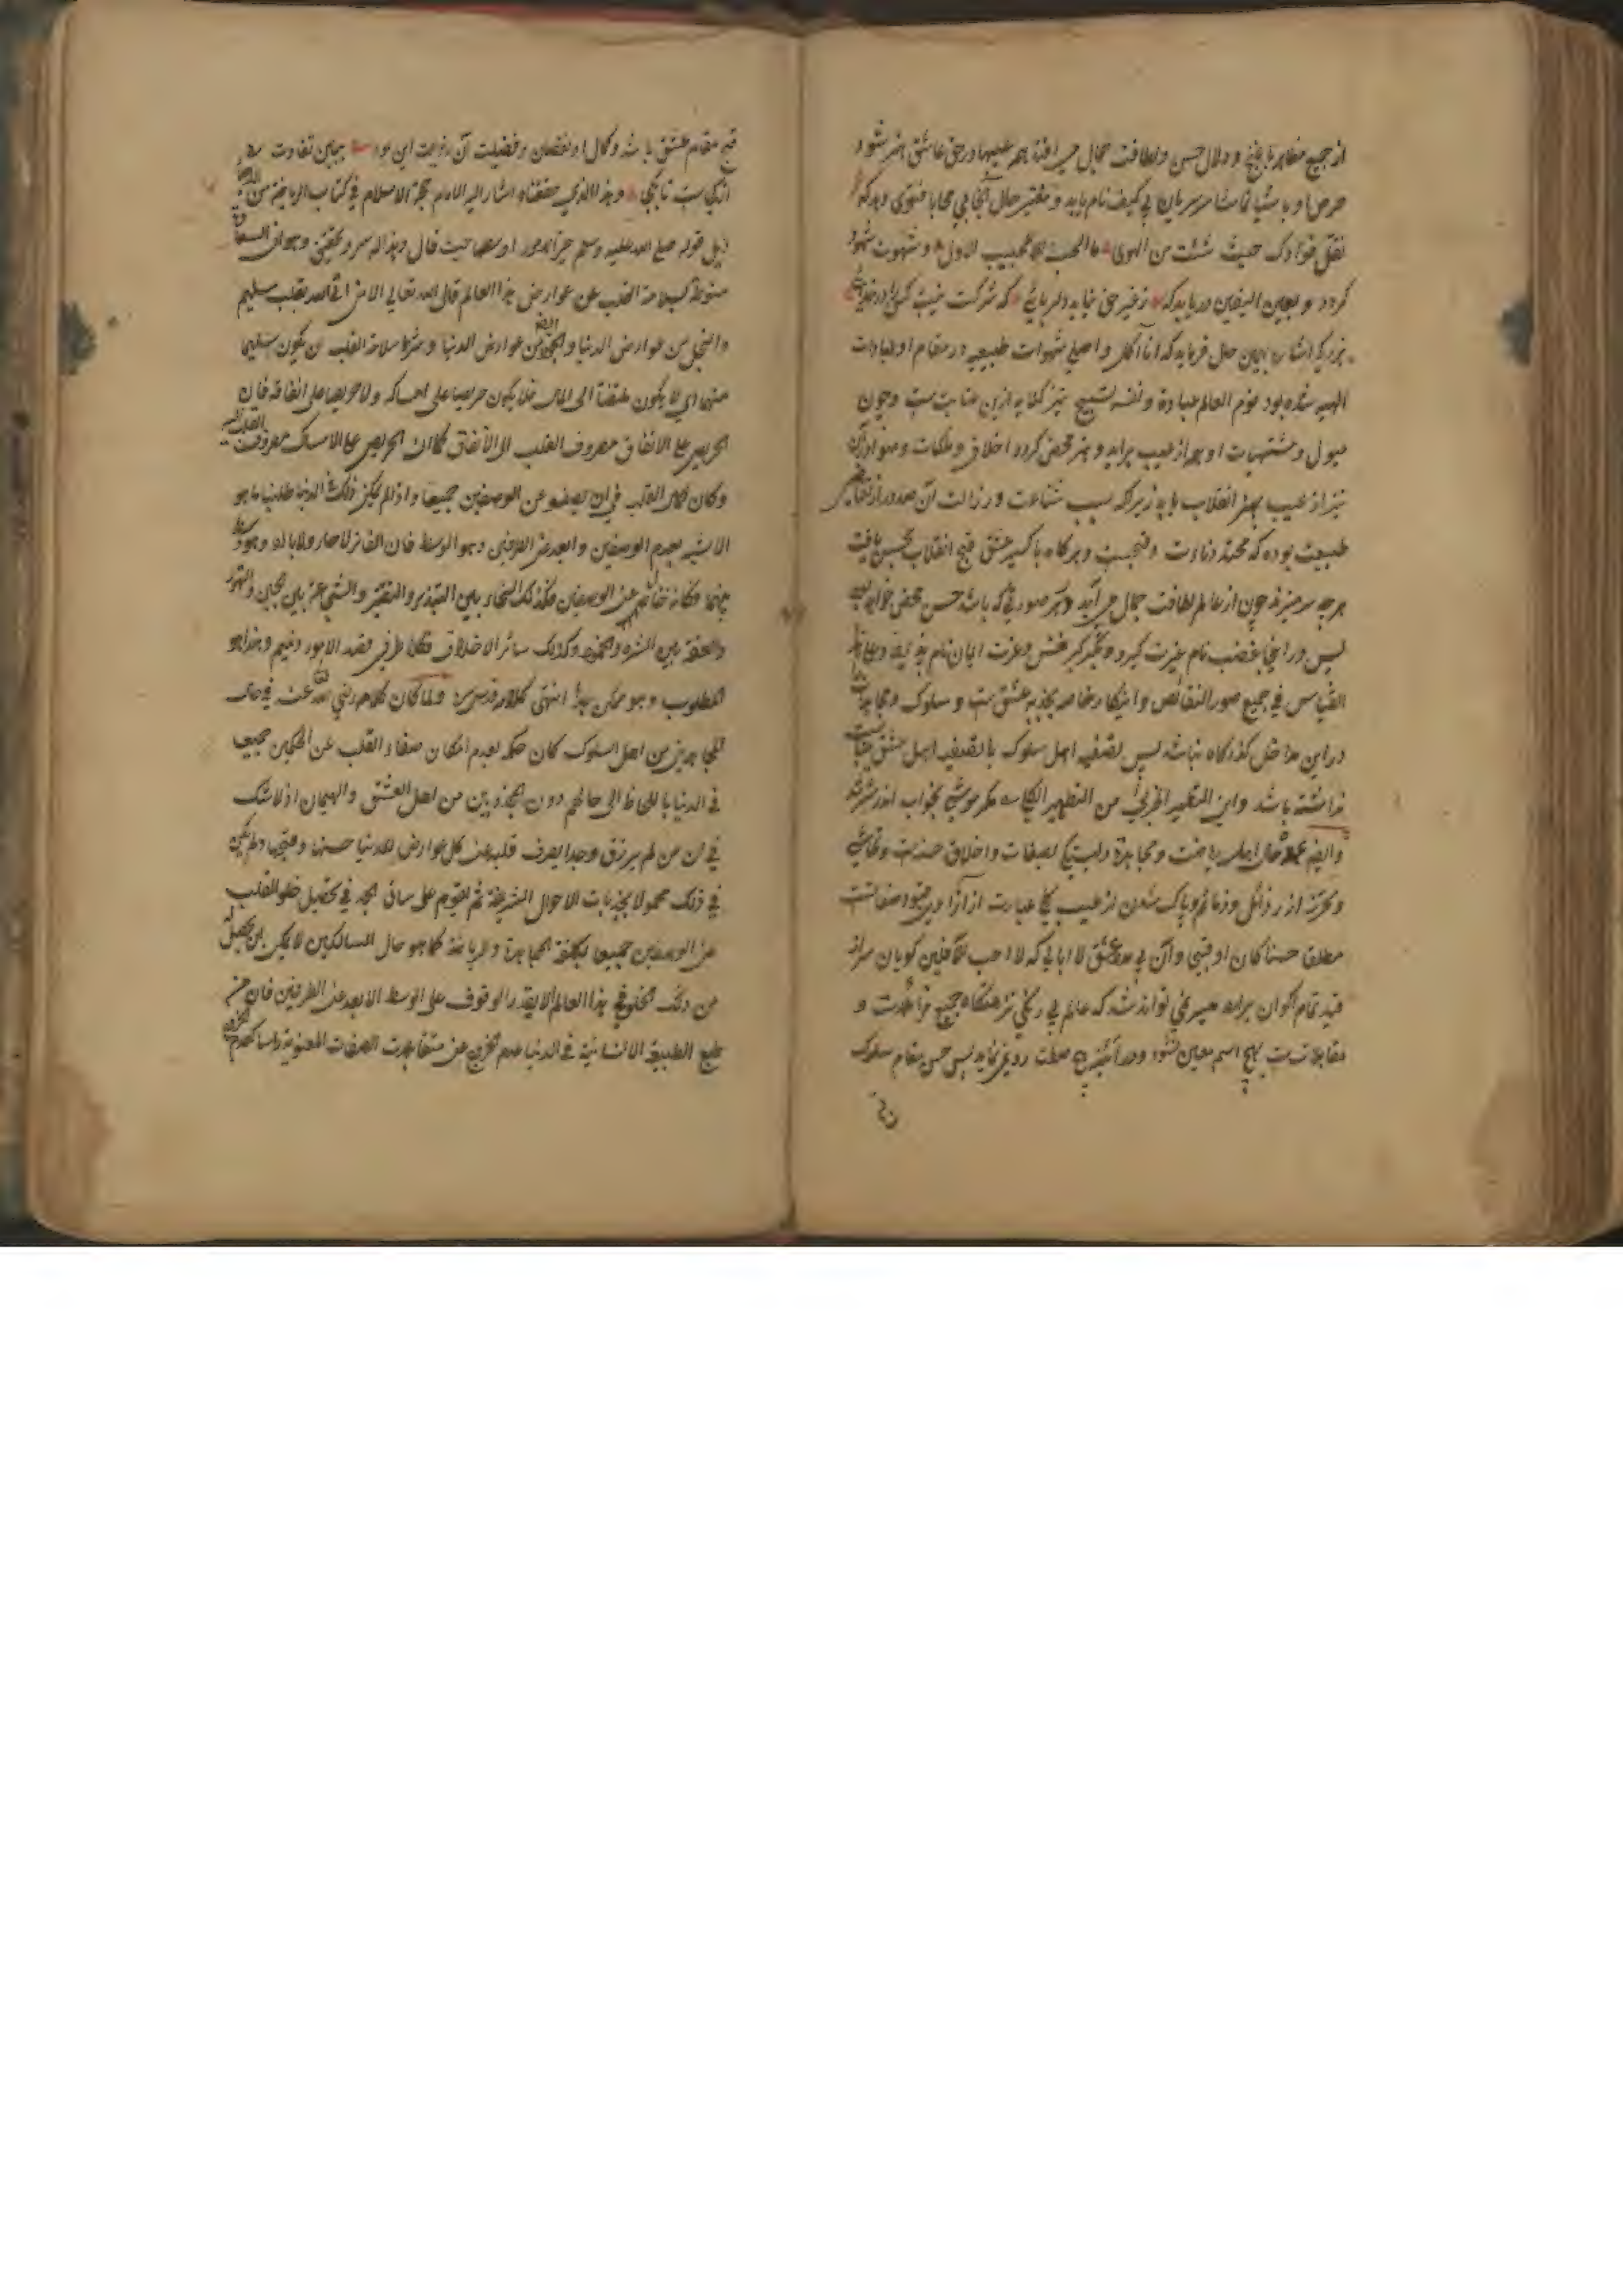 از جمیع مظاهر با غنج و دلال حسن و لطافت جمال می افتد هم در حق عاشق هنر شود
حرص او با نام یابد و حال فتوی دهد که
نقل فؤادک حیث شئت من الهوی ما الحب الا للحبیب الاول و شهوت شهود
گردد و بعین الیقین دریابد که ز غیر حق نیاید دلربائی که شرکت نیست کس را در خدائی
اشاره باین حال فرماید که اما اکل و اصلی شهوات طبیعیه در مقام او عبادات
الهیه شده بود نوم العالم عبادة و نفسه تسبیح نیز کنایه ازین مقامست و چون
میول و مشتهیات او همه از عیب براید و هنر محض گردد اخلاق و ملکات
نیز از عیب بهنر انقلاب یابد زیرا که سبب شناعت و رذالت آن صدور از
طبیعت بوده که محتد دناءت و قبحست و هرگاه باکسیر عشق قبح انقلاب بحسن یافت
هرچه سر میزند چون از عالم لطافت جمال می آید در هر صورتی که باشد حسن محض خواهد بود
پس در اینجا غضب نام غیرت گیرد و تکبر کبر عشق و عزت ایمان نام نهد
القیاس فی جمیع صور النقائص و این کار خاصه بجذبه عشق ست و سلوک و مجاهده
در این مداخل گذرگاه نباشد پس تصفیه اهل سلوک با تصفیه اهل عشق
نداشته باشد و این التطهیر الجزئی من التطهیر الکلی مگر موشی بخواب اندر شتر شد
و ایضا اهل ریاضت و مجاهده وابستگی بصفات و اخلاق حسنه
و تحرز از رذائل و ذمائم و پاک شدن از عیب کلی عبارت از
مطلق حسنا کان او قبیحا و آن بی مدد عشق لا ابالی که لا احب الآفلین گویان سر از
قید تمام اکوان برآرد میسر نمی تواند شد که عالم بی رنگی نزهتگاه جمیع و
مقابلات ست بهیچ اسم معین نشود و در آئینه هیچ صفت روی ننماید پس حسن مقام سلوک
قبح مقام عشق باشد و کمال او نقصان و فضیلت آن رذیلت این بود ببین تفاوت ره
از کجاست تا بکجا و هذا الذی حققناه اشار الیه الامام حجة الاسلام فی کتاب
ذیل قوله صلی الله علیه وسلم خیر الامور اوسطها حیث قال و هذا له سر و تحقیق و هو ان السعادة
منوطة بسلامة القلب عن عوارض هذا العالم قال الله تعالی الا من اتی الله بقلب سلیم
والبخل من عوارض الدنیا والجود ایضا من عوارض الدنیا و شرط سلامة القلب ان یکون سلیما
منهما ای لا یکون ملتفتا الی المال فلا یکون حریصا علی امساکه ولا حریصا علی انفاقه فان
الحریص علی الانفاق مصروف القلب الی الانفاق کما ان الحریص علی الامساک مصروف القلب الیه
وکان کمال القلب فی ان یصفو عن الوصفین جمیعا و اذا لم یکن ذلک فی الدنیا طلبنا ما هو
الاشبه بعدم الوصفین و ابعد عن الطرفین و هو الوسط فان الفاتر لا حار ولا بارد و هو وسط
بینهما فکانه خال عن الوصفین فکذلک السخاء بین التبذیر والتقتیر والشجاعة بین الجبن والتهور
والعفة بین الشره والجمود وکذلک سائر الاخلاق فکلا طرفی قصد الامور ذمیم و هذا هو
المطلوب و هو ممکن جدا انتهی کلامه قدس سره ولما کان کلامه رضی الله عنه فی حال
المجاهدین من اهل السلوک کان حکمه بعدم امکان صفاء القلب عن الحکمین جمیعا
فی الدنیا باللحاظ الی حالهم دون المجذوبین من اهل العشق والهیمان اذ لا شک
فی ان من لم یرزق وجدا یصرف قلبه عن کل عوارض الدنیا حسنها و قبیحها ولم یکن
فی ذلک محمولا بجذبات الاحوال الشریفة ثم یقوم علی ساق الجد فی تحصیل خلو القلب
عن الوصفین جمیعا بکلفة المجاهدة والریاضة کما هو حال السالکین لا یمکن ان یحصل
من ذلک الخلو فی هذا العالم الا بقدر الوقوف علی الوسط الابعد عن الطرفین فان من
طبع الطبیعة الانسانیة فی الدنیا عدم الخروج عن الصفات المعنویة